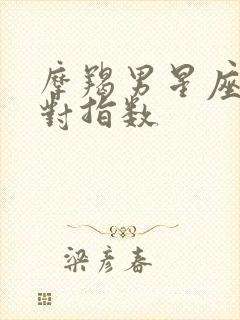 摩羯男星座
對指数
梁彦春